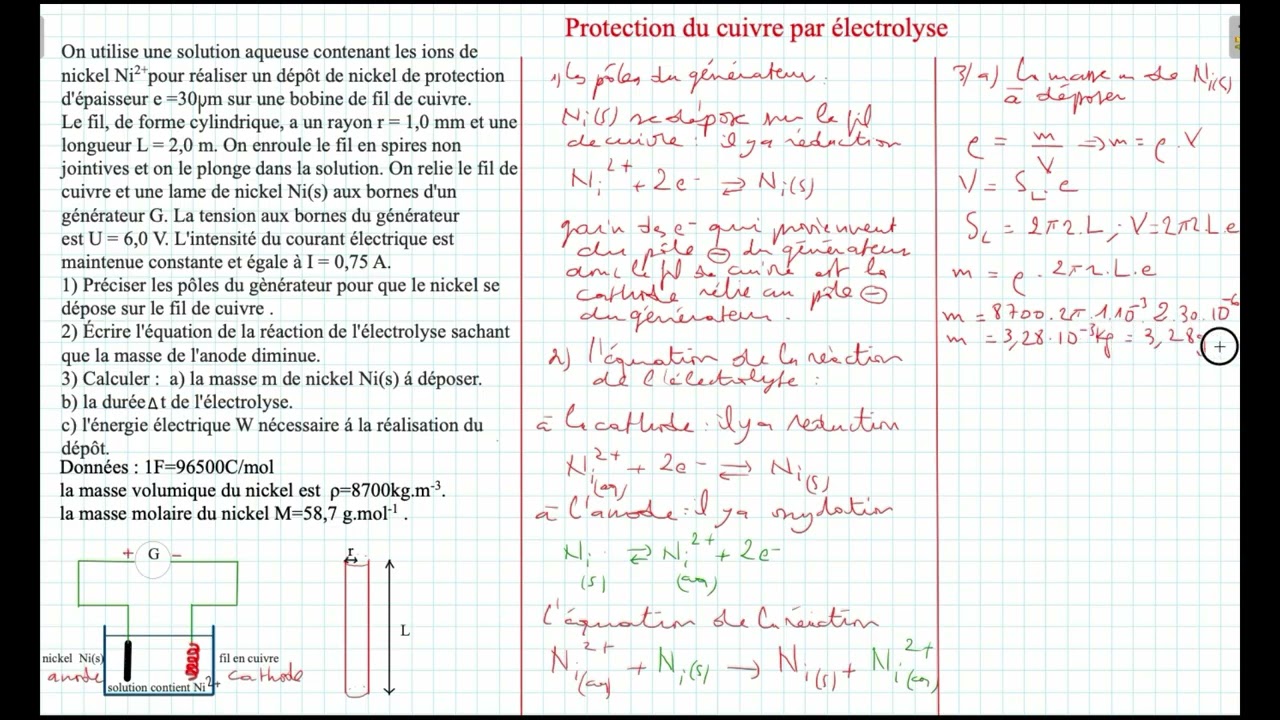 Protection du cuivre par électrolyse
On utilise une solution aqueuse contenant les ions de
nickel Ni²⁺pour réaliser un dépôt de nickel de protection
d'épaisseur e =30μm sur une bobine de fil de cuivre.
Le fil, de forme cylindrique, a un rayon r = 1,0 mm et une
longueur L = 2,0 m. On enroule le fil en spires non
jointives et on le plonge dans la solution. On relie le fil de
cuivre et une lame de nickel Ni(s) aux bornes d'un
générateur G. La tension aux bornes du générateur
est U = 6,0 V. L'intensité du courant électrique est
maintenue constante et égale à I = 0,75 A.
1) Préciser les pôles du gènérateur pour que le nickel se
dépose sur le fil de cuivre .
2) Écrire l'équation de la réaction de l'électrolyse sachant
que la masse de l'anode diminue.
3) Calculer : a) la masse m de nickel Ni(s) á déposer.
b) la durée Δt de l'électrolyse.
c) l'énergie électrique W nécessaire á la réalisation du
dépôt.
Données : 1F=96500C/mol
la masse volumique du nickel est ρ=8700kg.m⁻³.
la masse molaire du nickel M=58,7 g.mol⁻¹ .
+ G −
r
L
nickel Ni(s)
anode
solution contient Ni²⁺
fil en cuivre
cathode
1) les pôles du générateur :
Ni(s) se dépose sur le fil
de cuivre : il y a réduction
Ni²⁺ + 2e⁻ ⇌ Ni(s)
gain des e⁻ qui proviennent
du pôle ⊖ du générateur
donc le fil de cuivre est la
cathode rélié au pôle ⊖
du générateur .
2) l'équation de la réaction
de l'électrolyte :
à la cathode : il y a reduction
Ni²⁺(aq) + 2e⁻ ⇌ Ni(s)
à l'anode : il y a oxydation
Ni(s) ⇌ Ni²⁺(aq) + 2e⁻
l'équation de la réaction
Ni²⁺(aq) + Ni(s) → Ni(s) + Ni²⁺(aq)
3/ a) la masse m de Ni(s)
à déposer
ρ = m/V ⇒ m = ρ.V
V = S_L . e
S_L = 2πr.L ; V = 2πrL.e
m = ρ . 2πr.L.e
m = 8700.2π.1.10⁻³.2.30.10⁻⁶
m = 3,28.10⁻³kg = 3,28g